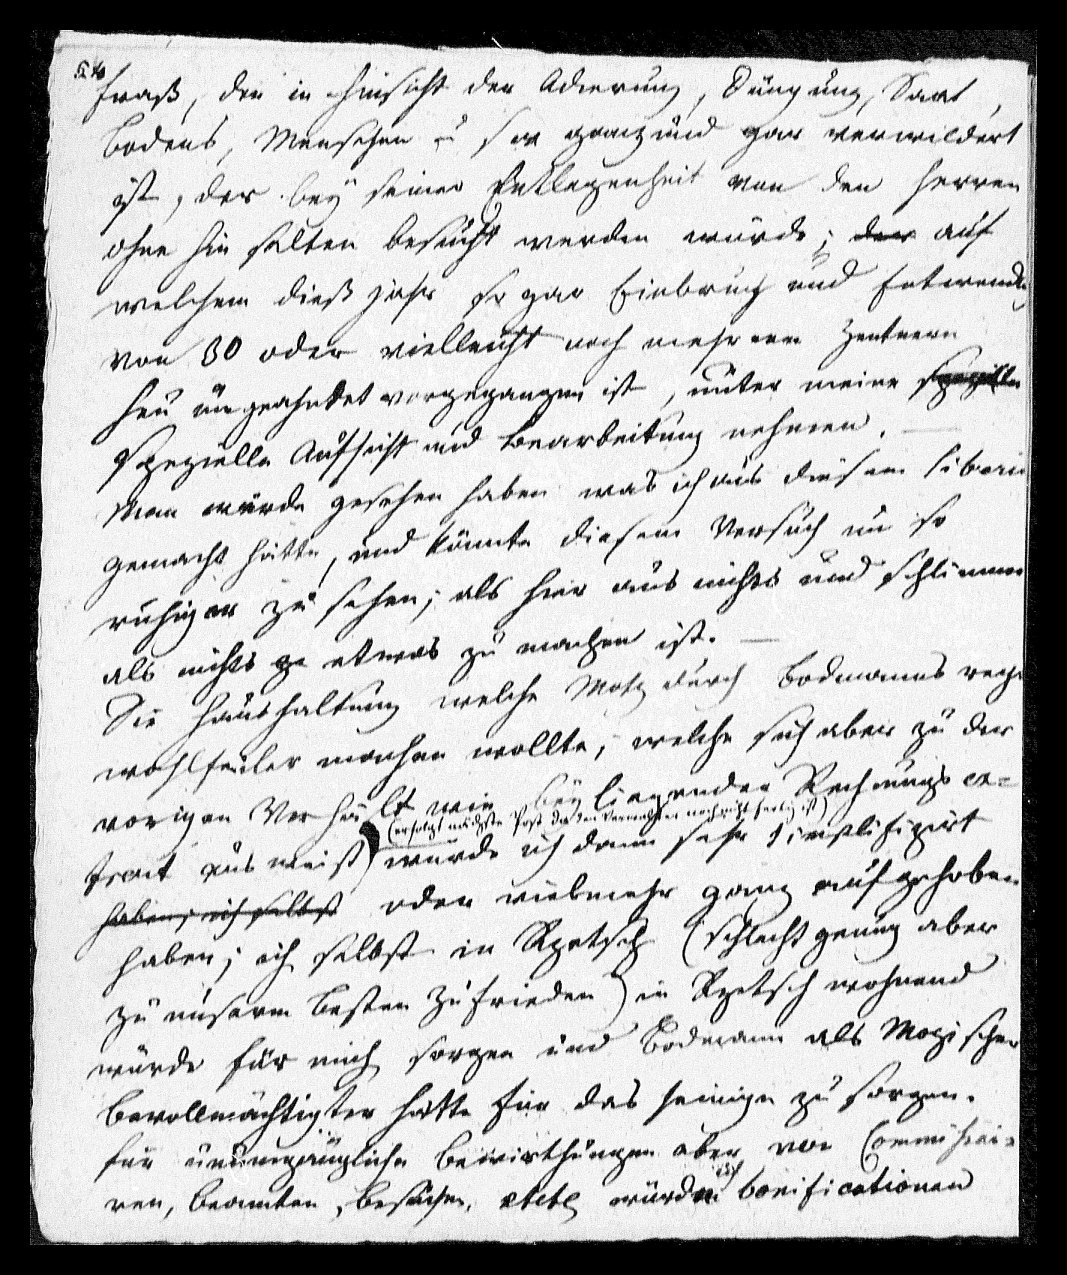 Fraß, der in Hinsicht der Aderung, Düngung, Saat,
Bodens, Menschen u so ganz und gar verwildert
ist, der bey seiner Entlegenheit von den Herren
ohne hin selten besucht werden würde; der auf
welchem dieß Jahr so gar Einbruch und Entwendg
von 80 oder vielleicht noch mehreren Zentnern
Heu ungeahndet vorgegangen ist, unter meine spezielle
spezielle Aufsicht und Bearbeitung nehmen. —
Man würde gesehen haben was ich aus diesem Siberien
gemacht hätte, und könnte diesem Versuch um so
ruhiger zu sehen; als hier aus nichts und schlimmer
als nichts etwas zu machen ist. —
Die Haushaltung welche Motz durch Bodmanns
wohlfeiler machen wollte, welche sich aber zu der
vorigen Verhält wie beyliegender Rechnungs ex=
(erfolgt nächste Post da der Verwalter noch nicht fertig ist)
tract ausweist würde ich dann sehr simplifizirt
haben, ich selbst oder vielmehr ganz aufgehoben
haben; ich selbst in Rzetsch (schlecht genug aber
zu unserm Besten zufrieden) in Rzetsch wohnend
würde für mich sorgen und Bodmann als Mozischer
bevollmächtigter hätte für das seinige zu sorgen.
für unumgängliche Bewirthungen aber von Commissai=
ren, Beamten, Besuchen, etc würde ich bonificationen